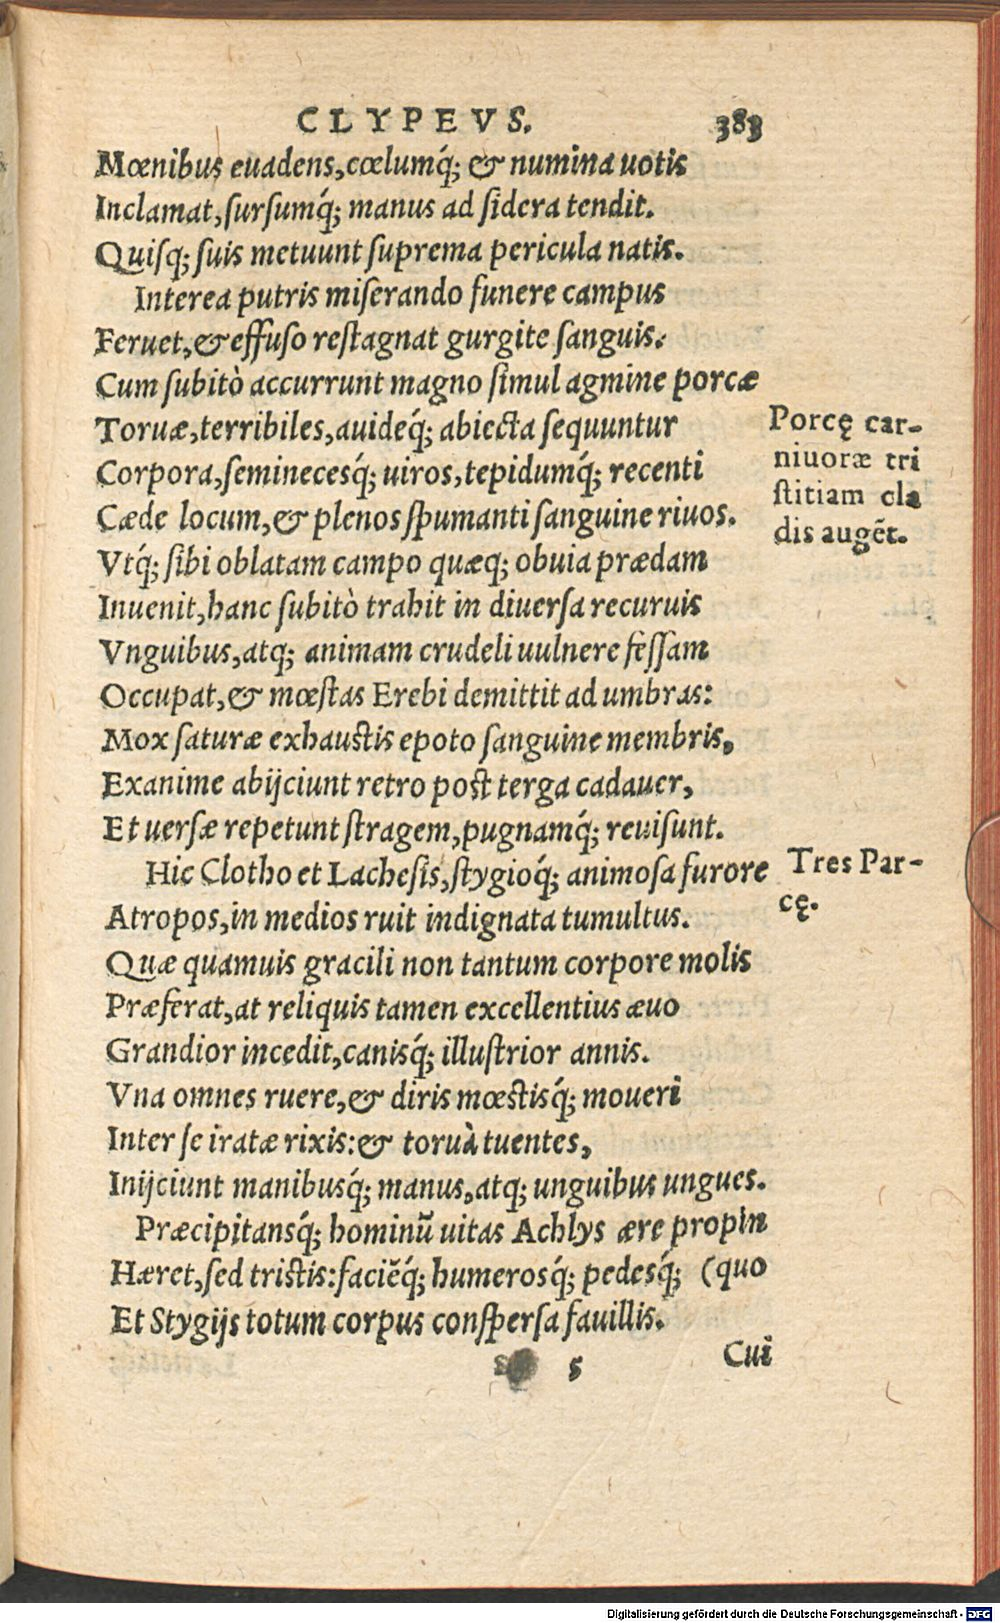 CLYPEVS. 383
Mœnibus euadens, cœlumq́; & numina uotis
Inclamat, ſurſumq́; manus ad ſidera tendit.
Quiſq; ſuis metuunt ſuprema pericula natis.
Interea putris miſerando funere campus
Feruet, & effuſo reſtagnat gurgite ſanguis.
Cum ſubitò accurrunt magno ſimul agmine porcæ
Toruæ, terribiles, auideq́; abiecta ſequuntur
Porcę car-
niuoræ tri
ſtitiam cla
dis augēt.
Corpora, ſeminecesq́; uiros, tepidumq́; recenti
Cæde locum, & plenos ſpumanti ſanguine riuos.
Vtq́; ſibi oblatam campo quæq; obuia prædam
Inuenit, hanc ſubitò trahit in diuerſa recuruis
Vnguibus, atq; animam crudeli uulnere feſſam
Occupat, & mœſtas Erebi demittit ad umbras:
Mox ſaturæ exhauſtis epoto ſanguine membris,
Exanime abijciunt retro poſt terga cadauer,
Et uerſæ repetunt ſtragem, pugnamq́; reuiſunt.
Hic Clotho et Lacheſis, ſtygioq́; animoſa furore
Tres Par-
cę.
Atropos, in medios ruit indignata tumultus.
Quæ quamuis gracili non tantum corpore molis
Præferat, at reliquis tamen excellentius æuo
Grandior incedit, canisq́; illuſtrior annis.
Vna omnes ruere, & diris mœſtisq́; moueri
Inter ſe iratæ rixis: & toruà tuentes,
Inijciunt manibusq́; manus, atq; unguibus ungues.
Præcipitansq́; hominū uitas Achlys ære propin
Hæret, ſed triſtis: faciēq́; humerosq́; pedesq́; (quo
Et Stygijs totum corpus conſperſa fauillis.
5 Cui
Digitalisierung gefördert durch die Deutsche Forschungsgemeinschaft - DFG